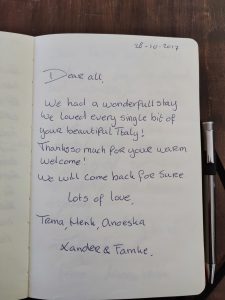 28-10-2017
Dear all,
We had a wonderfull stay
We loved every single bit of
your beautiful Italy!
Thanks so much for your warm
welcome!
We will come back for sure
Lots of love,
Tema, Henk, Anoeska
Xander & Famke.